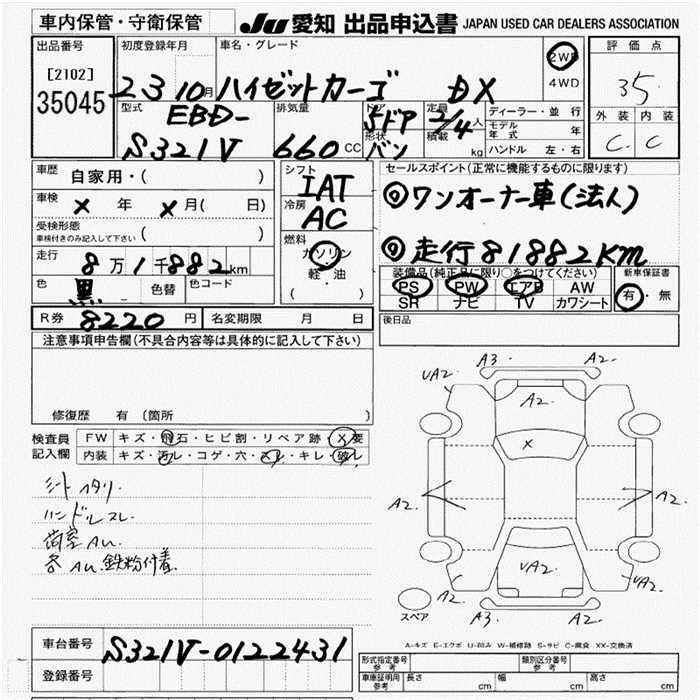 車内保管・守衛保管
JU 愛知 出品申込書 JAPAN USED CAR DEALERS ASSOCIATION
出品番号
[2102]
35045
初度登録年月
23 10月
車名・グレード
ハイゼットカーゴ DX
2WD
4WD
評価点
3.5
外装 内装
C C
型式
EBD-
S321V
排気量
660 CC
ドア
5ドア
形状
バン
定員
2/4人
積載
kg
ディーラー・並行
モデル年式 年
ハンドル 左・右
車歴
自家用・( )
車検
X 年 X 月( 日)
受検形態
車検付きのみ記入して下さい ( )
走行
8万1千882km
色
黒
色替
色コード
シフト
IAT
冷房
AC
燃料
ガソリン
軽・油
( )
セールスポイント(正常に機能するものに限ります)
◎ワンオーナー車(法人)
◎走行81882KM
装備品(純正品に限り○をつけてください)
PS PW エアB AW
SR ナビ TV カワシート
新車保証書
有・無
R券 8220円
名変期限 月 日
後日品
注意事項申告欄(不具合内容等は具体的に記入して下さい)
修復歴 有(箇所 )
検査員
記入欄
FW キズ・飛石・ヒビ割・リペア跡・X要
内装 キズ・汚レ・コゲ・穴・スレ・キレ・破レ
シートヘタリ.
ハンドルスレ.
荷室AU.
各AU.鉄粉付着.
A3. A2.
UA2. A2.
X
A2. A2.
UA2.
A2. UA2.
A3. A2.
スペア
A-キズ E-エクボ U-凹み W-補修跡 S-サビ C-腐食 XX-交換済
車台番号 S321V-0122431
登録番号
形式指定番号
参考
類別区分番号
参考
車庫証明用
参考
長さ cm 幅 cm 高さ cm